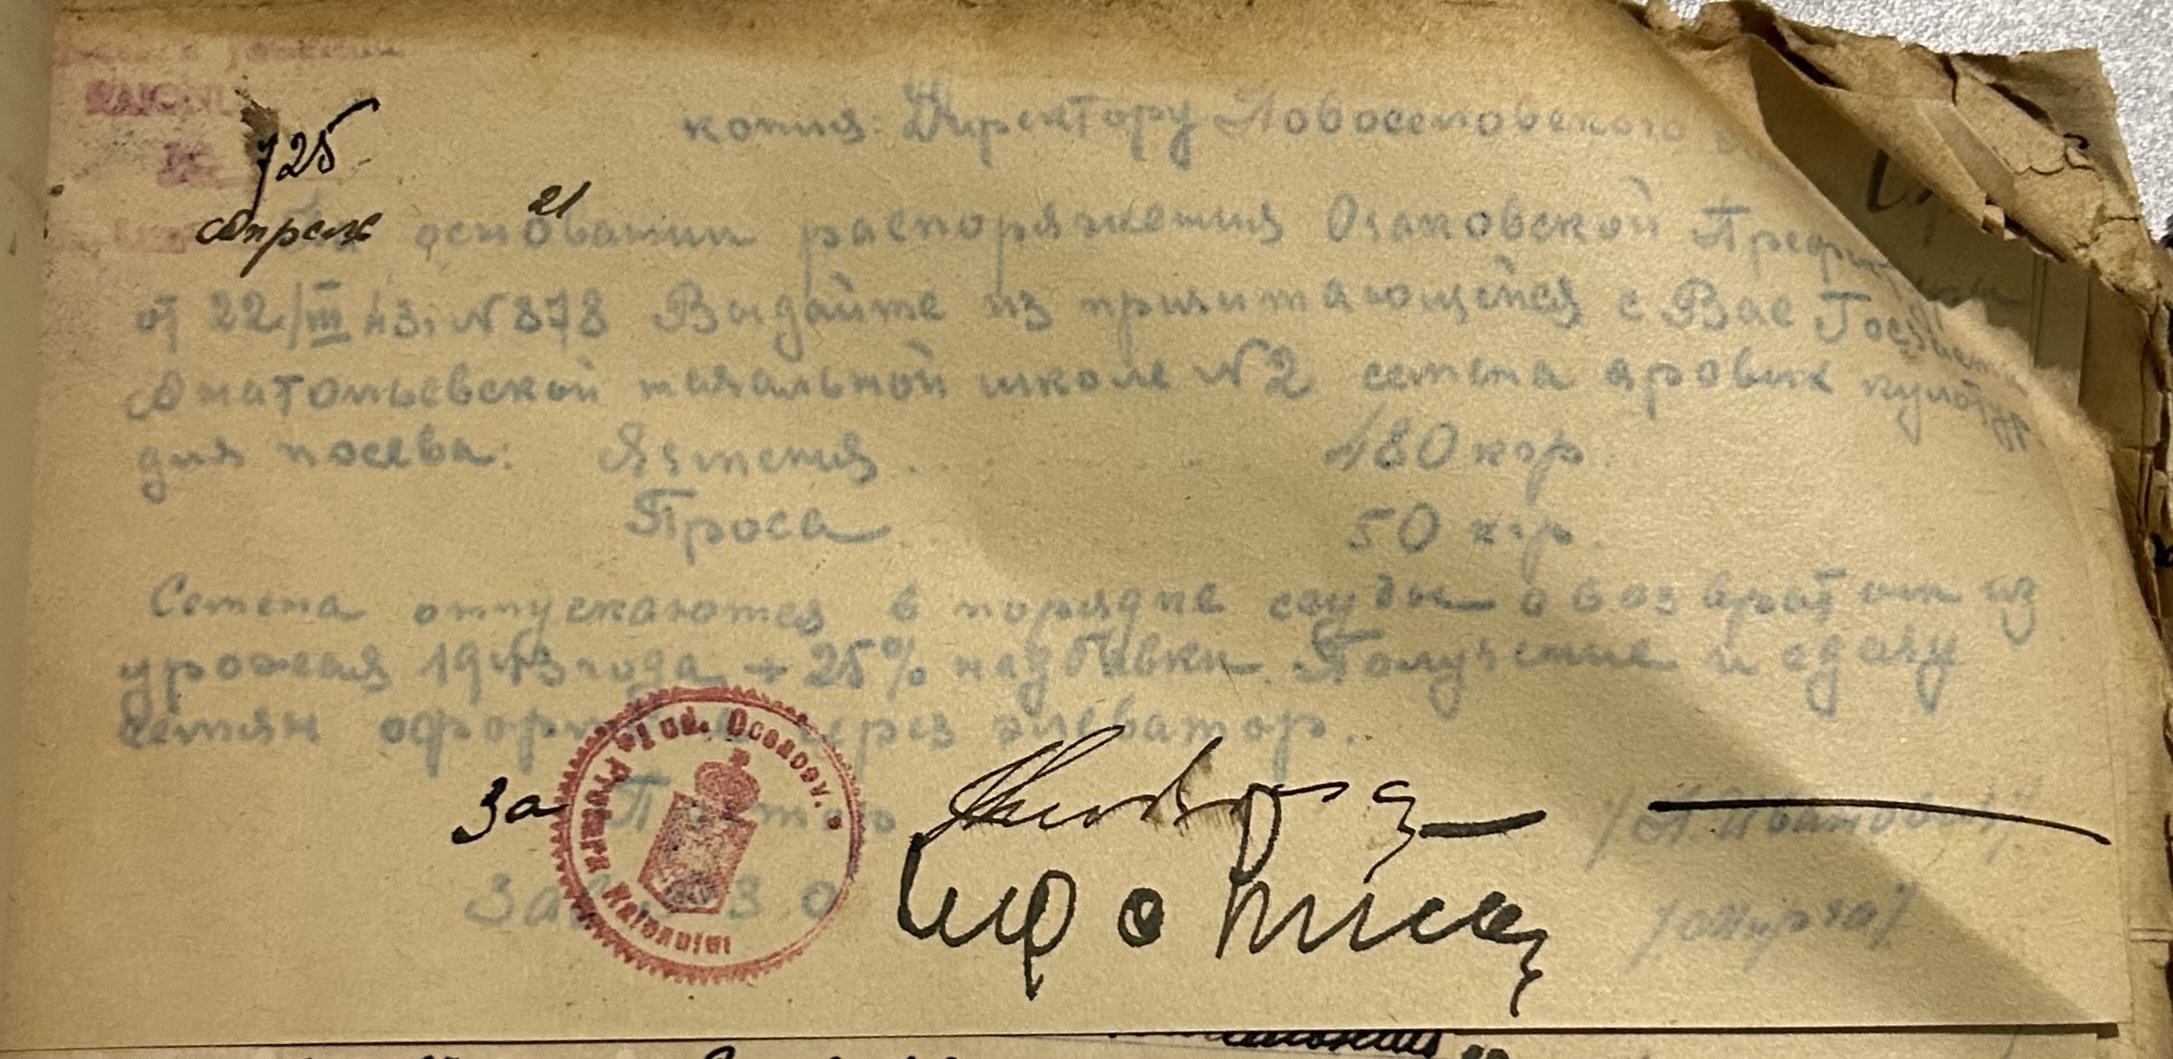 725
копия: Директору Новоселовского
Апреля 21
основании распоряжения Очаковской Префектуры
от 22/III 43. № 878 Выдайте из причитающейся с Вас Госчасти
Анатольевской начальной школе № 2 семена яровых культур
для посева: Ячменя 480 кгр
Проса 50 кгр.
Семена отпускаются в порядке ссуды с возвратом из
урожая 1943 года + 25% надбавки. Получение и сдачу
семян через элеватор.
За Претор /А. Иванов/
Jud. Oceacov. Pretura Raionului